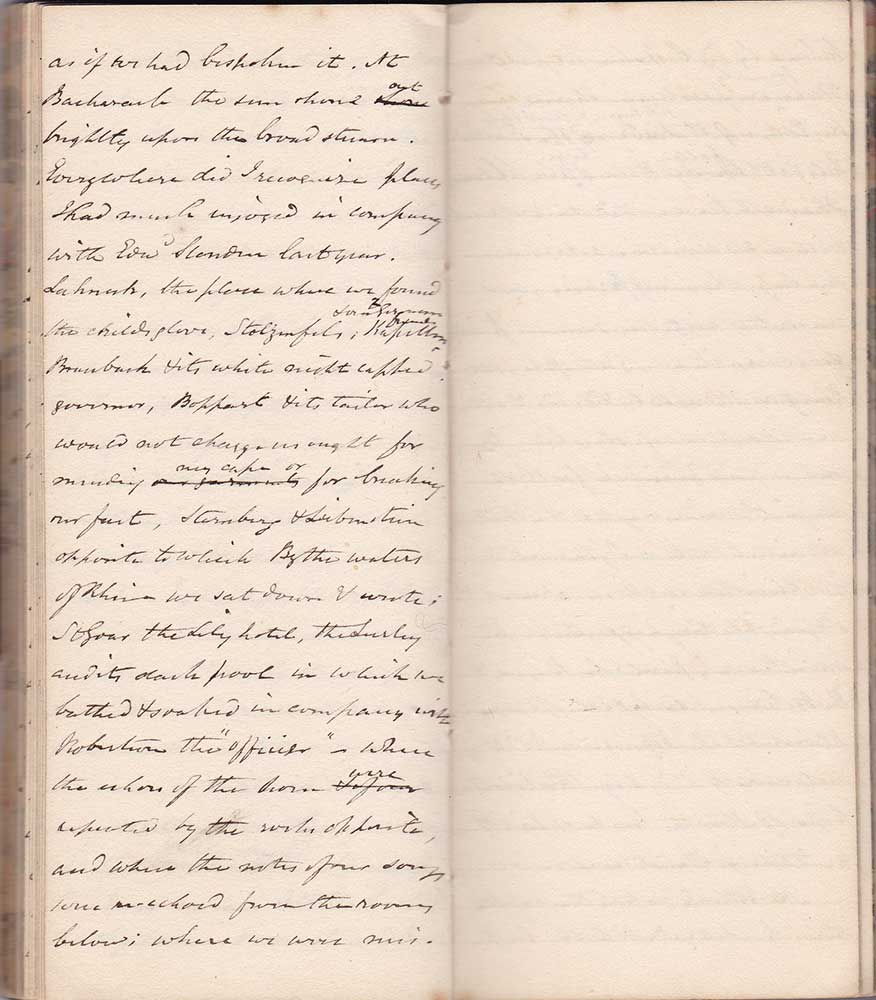 as if we had bespoken it. At
Bacharach the sun shone out
brightly upon the broad stream.
Everywhere did I recognize places
I had much enjoyed in company
with Edwd Slender last year.
Lahneck, the place where we found
the childs glove, Stolzenfels, Kapellen
Braubach & its white night capped
governor, Boppart & its tailor who
would not charge us aught for
mending my cape or our garments for breaking
our fast, Sternberg & Leibenstein
opposite to which By the waters
of Rhine we sat down & wrote;
St Goar the Lily hotel, the Lurley
and its dark pool in which we
bathed & soaked in company with
Robertson the "officier" – where
the echoes of the horn were
repeated by the rocks opposite,
and where the notes of our songs
were re-echoed from the rooms
below; where we were mis-